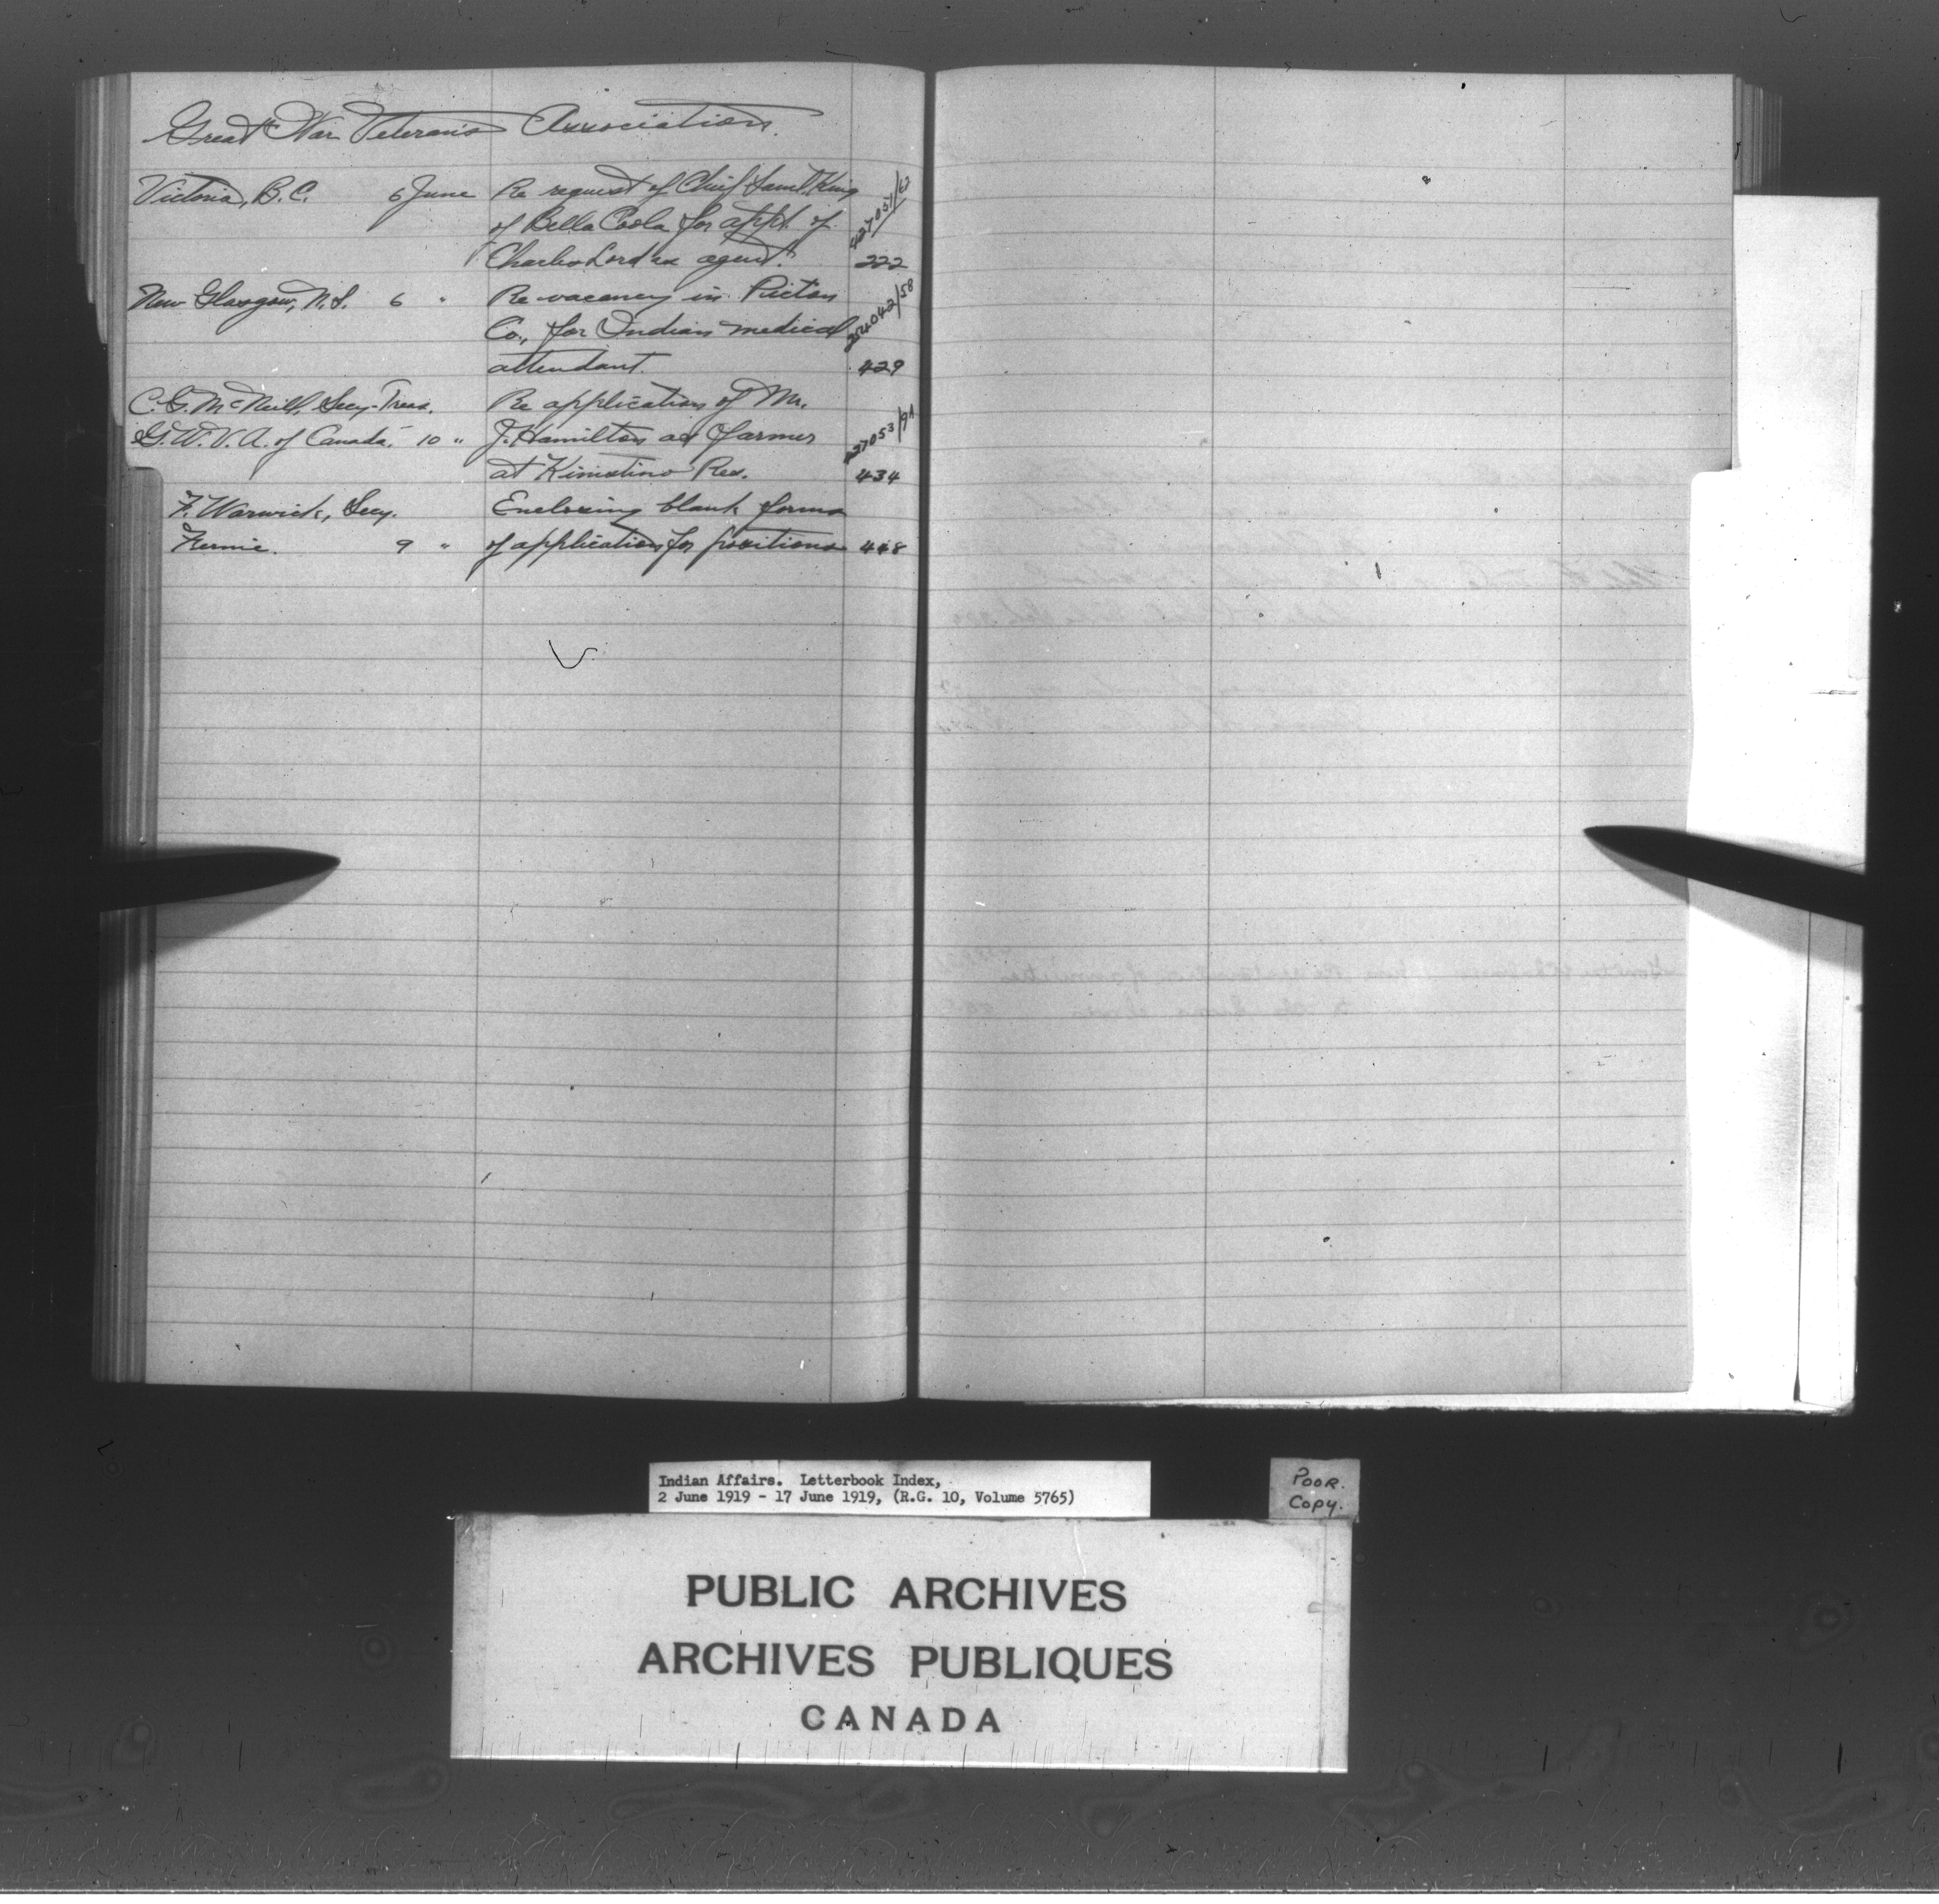 Great War Veterans Association.
Victoria, B.C. 6 June Re request of Chief Saml. King
of Bella Coola for appt. of
Charles Lord as agent. 222
New Glasgow, N.S. 6 " Re vacancy in Pictou 254042/58
Co., for Indian medical
attendant. 429
C.G. McNeill, Secy-Treas. Re application of Mr.
G.W.V.A. of Canada. 10 " J. Hamilton as farmer
at Kinistino Res. 434
F. Warwick, Secy. Enclosing blank forms
Fernie. 9 " of application for positions 448
Indian Affairs. Letterbook Index,
2 June 1919 - 17 June 1919, (R.G. 10, Volume 5765)
POOR.
Copy.
PUBLIC ARCHIVES
ARCHIVES PUBLIQUES
CANADA